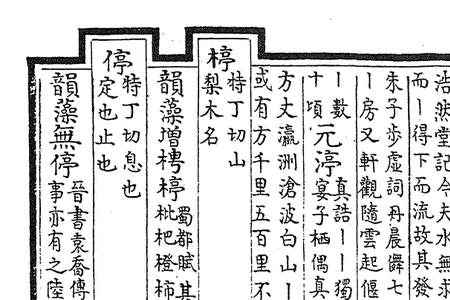 浩然堂記今夫水無求
而丨得下而流故其發
朱子步虛詞丹晨儛七
丨房又軒觀隨雲起偃
丨數
十頃
元渟
真誥丨丨獨
宴子栖偶真
方丈瀛洲滄波白山丨
或有方千里五百里不
楟
特丁切山
梨木名
韻藻增梬楟
蜀都賦其
枇杷橙柿
停
特丁切息也
定也止也
韻藻無停
晉書袁喬傳
事亦有之陸